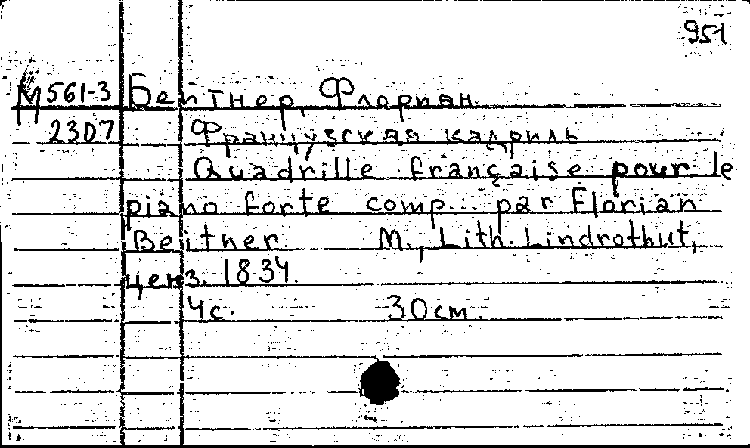 951
М 561-3 Бейтнер, Флориан.
2307 Французская кадриль
Quadrille française pour le
piano forte comp... par Florian
Beitner М., Lith. Lindrothut,
ценз. 1834.
4с. 30см.